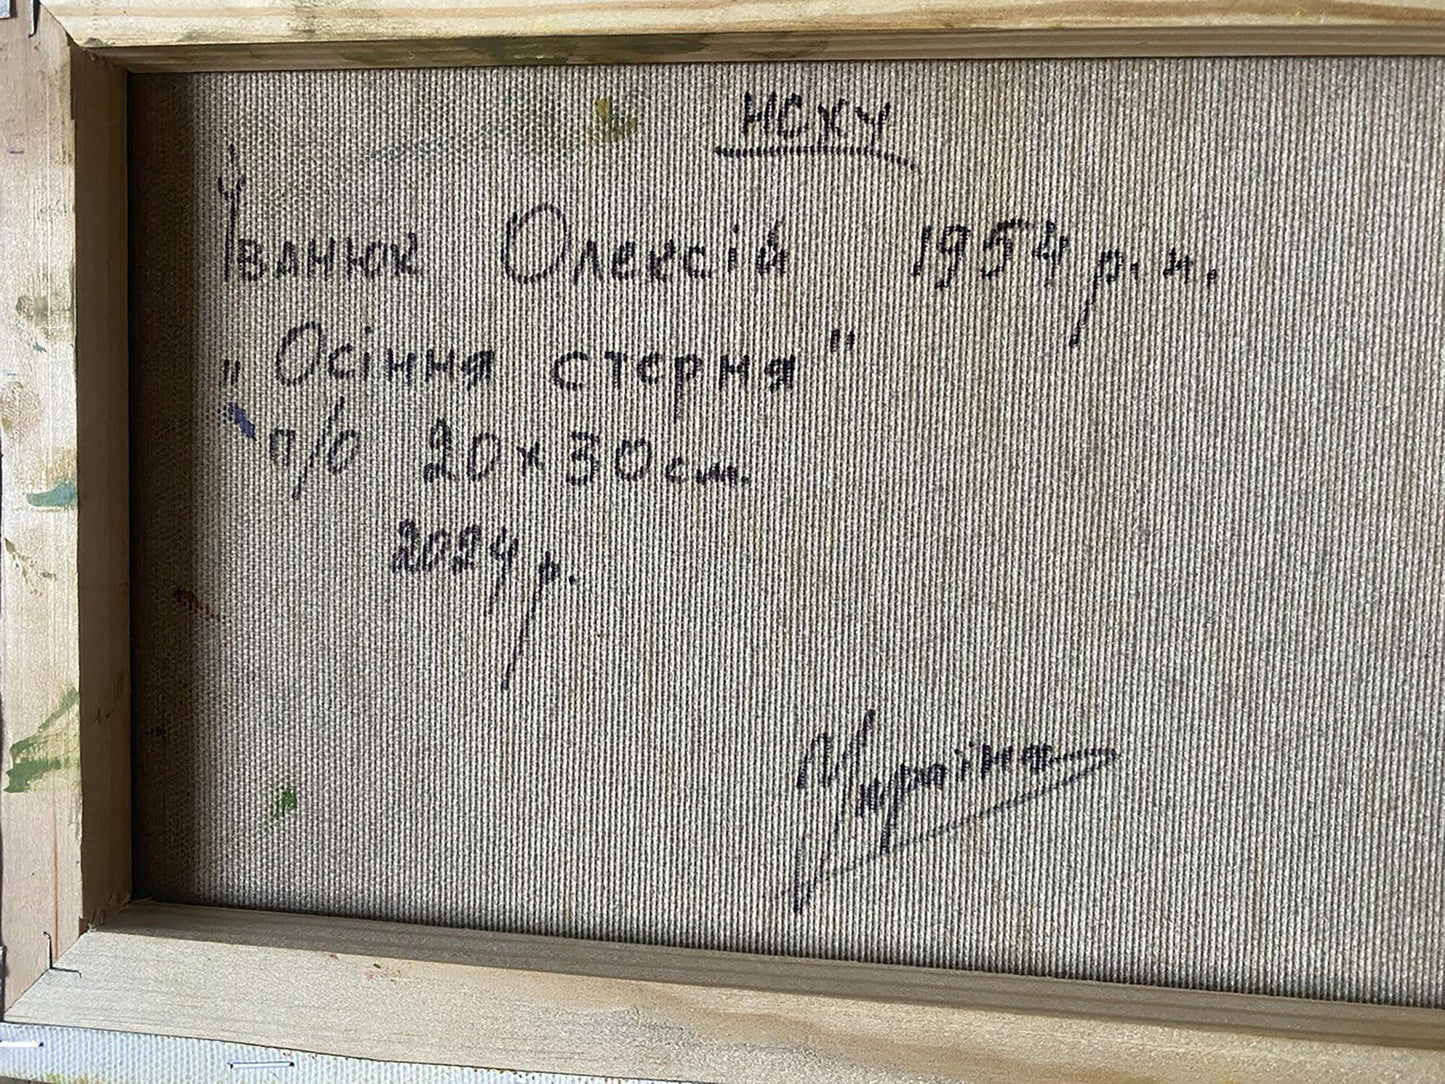 НСХУ
Іванюк Олексій 1954 р.н.
„Осіння стерня"
п/о 20х30см.
2024 р.
Україна